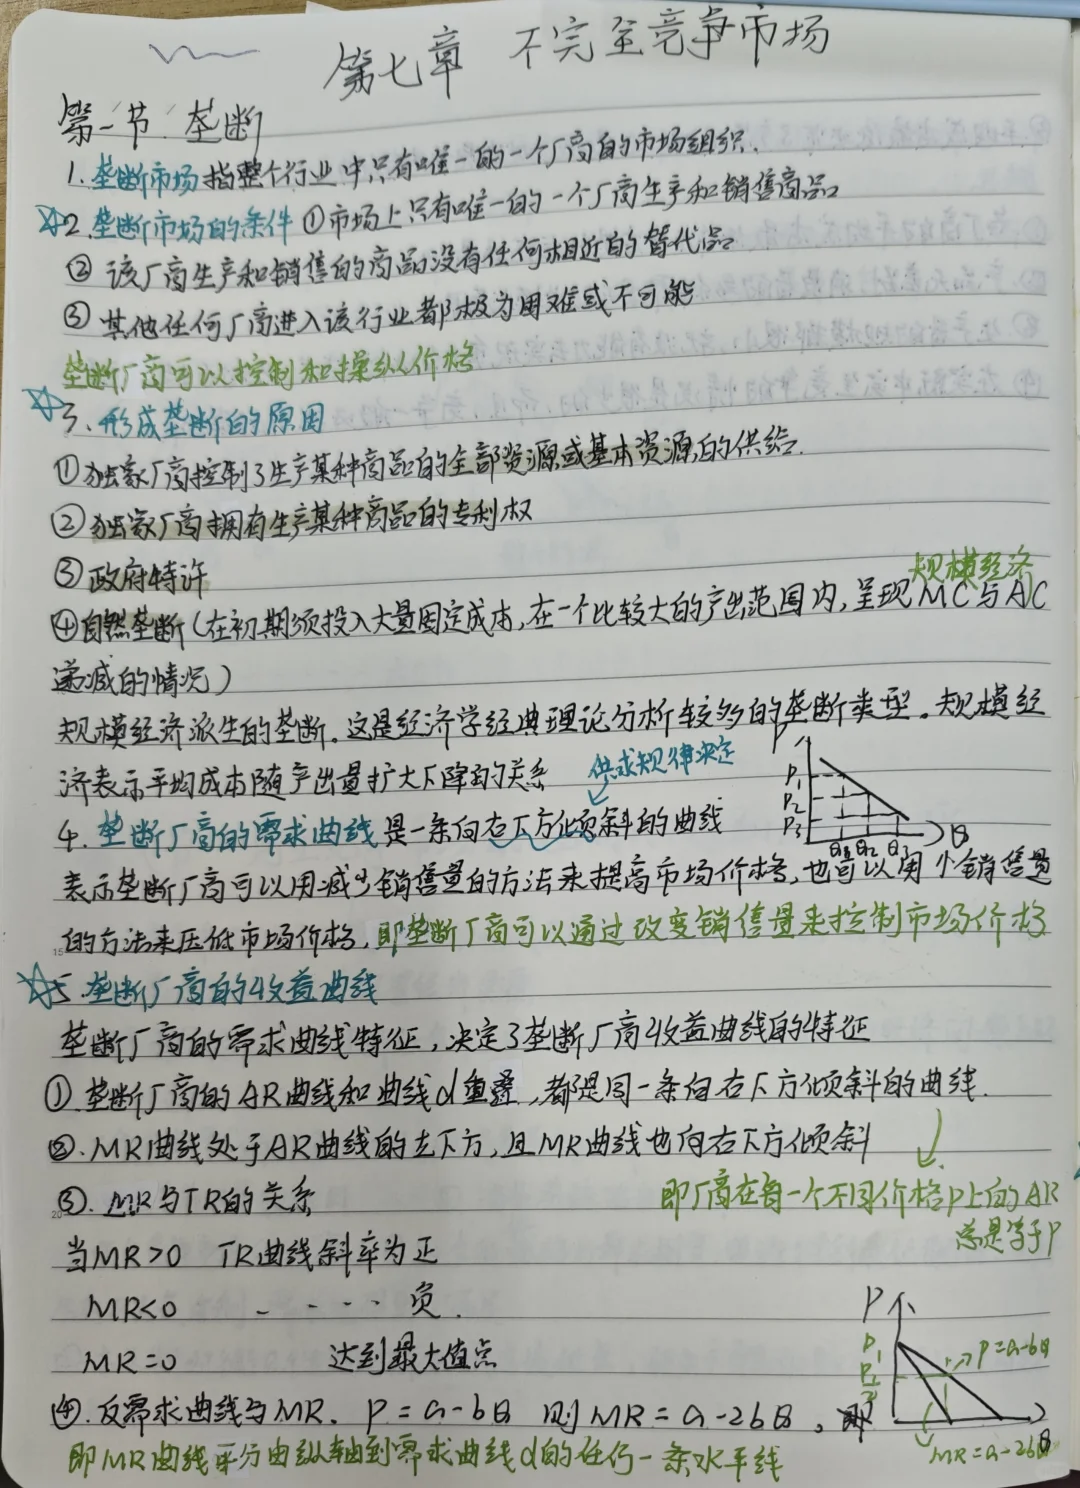 第七章 不完全竞争市场
第一节 垄断
1. 垄断市场指整个行业中只有唯一的一个厂商的市场组织.
2. 垄断市场的条件 ①市场上只有唯一的一个厂商生产和销售商品
② 该厂商生产和销售的商品没有任何相近的替代品
③ 其他任何厂商进入该行业都极为困难或不可能
垄断厂商可以控制和操纵价格
3、形成垄断的原因
①独家厂商控制了生产某种商品的全部资源或基本资源的供给.
②独家厂商拥有生产某种商品的专利权
③政府特许
规模经济
④自然垄断(在初期须投入大量固定成本,在一个比较大的产出范围内,呈现MC与AC
递减的情况)
规模经济派生的垄断。这是经济学经典理论分析较多的垄断类型。规模经
济表示平均成本随产出量扩大下降的关系
供求规律决定
P
P1
P2
P3
Q1 Q2 Q3
Q
4. 垄断厂商的需求曲线是一条向右下方倾斜的曲线
表示垄断厂商可以用减少销售量的方法来提高市场价格,也可以用个销售量
的方法来压低市场价格,即垄断厂商可以通过改变销售量来控制市场价格
5.垄断厂商的收益曲线
垄断厂商的需求曲线特征,决定了垄断厂商收益曲线的特征
①.垄断厂商的AR曲线和曲线d重叠,都是同一条向右下方倾斜的曲线.
②.MR曲线处于AR曲线的左下方,且MR曲线也向右下方倾斜
③.MR与TR的关系
即厂商在每一个不同价格P上的AR
总是等于P
当MR>0 TR曲线斜率为正
MR<0 - - - - 负.
MR=0 达到最大值点
P
P1
P2
P=a-bQ
④.反需求曲线与MR. P=a-bQ 则MR=a-2bQ,即
Q
MR=a-2bQ
即MR曲线平分由纵轴到需求曲线d的任何一条水平线